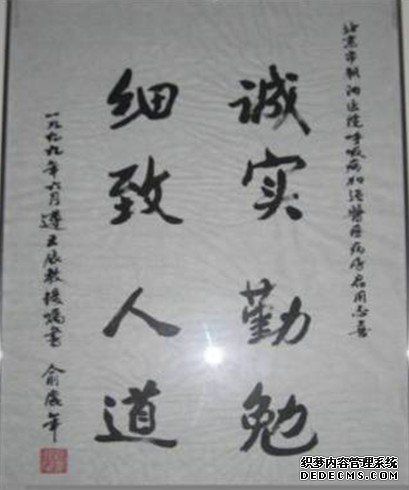 北京市朝阳医院呼吸病加强医疗病房启用志喜
诚实勤勉
细致人道
一九九九年六月遵王辰教授嘱书
织梦内容管理系统
DEDECMS.COM